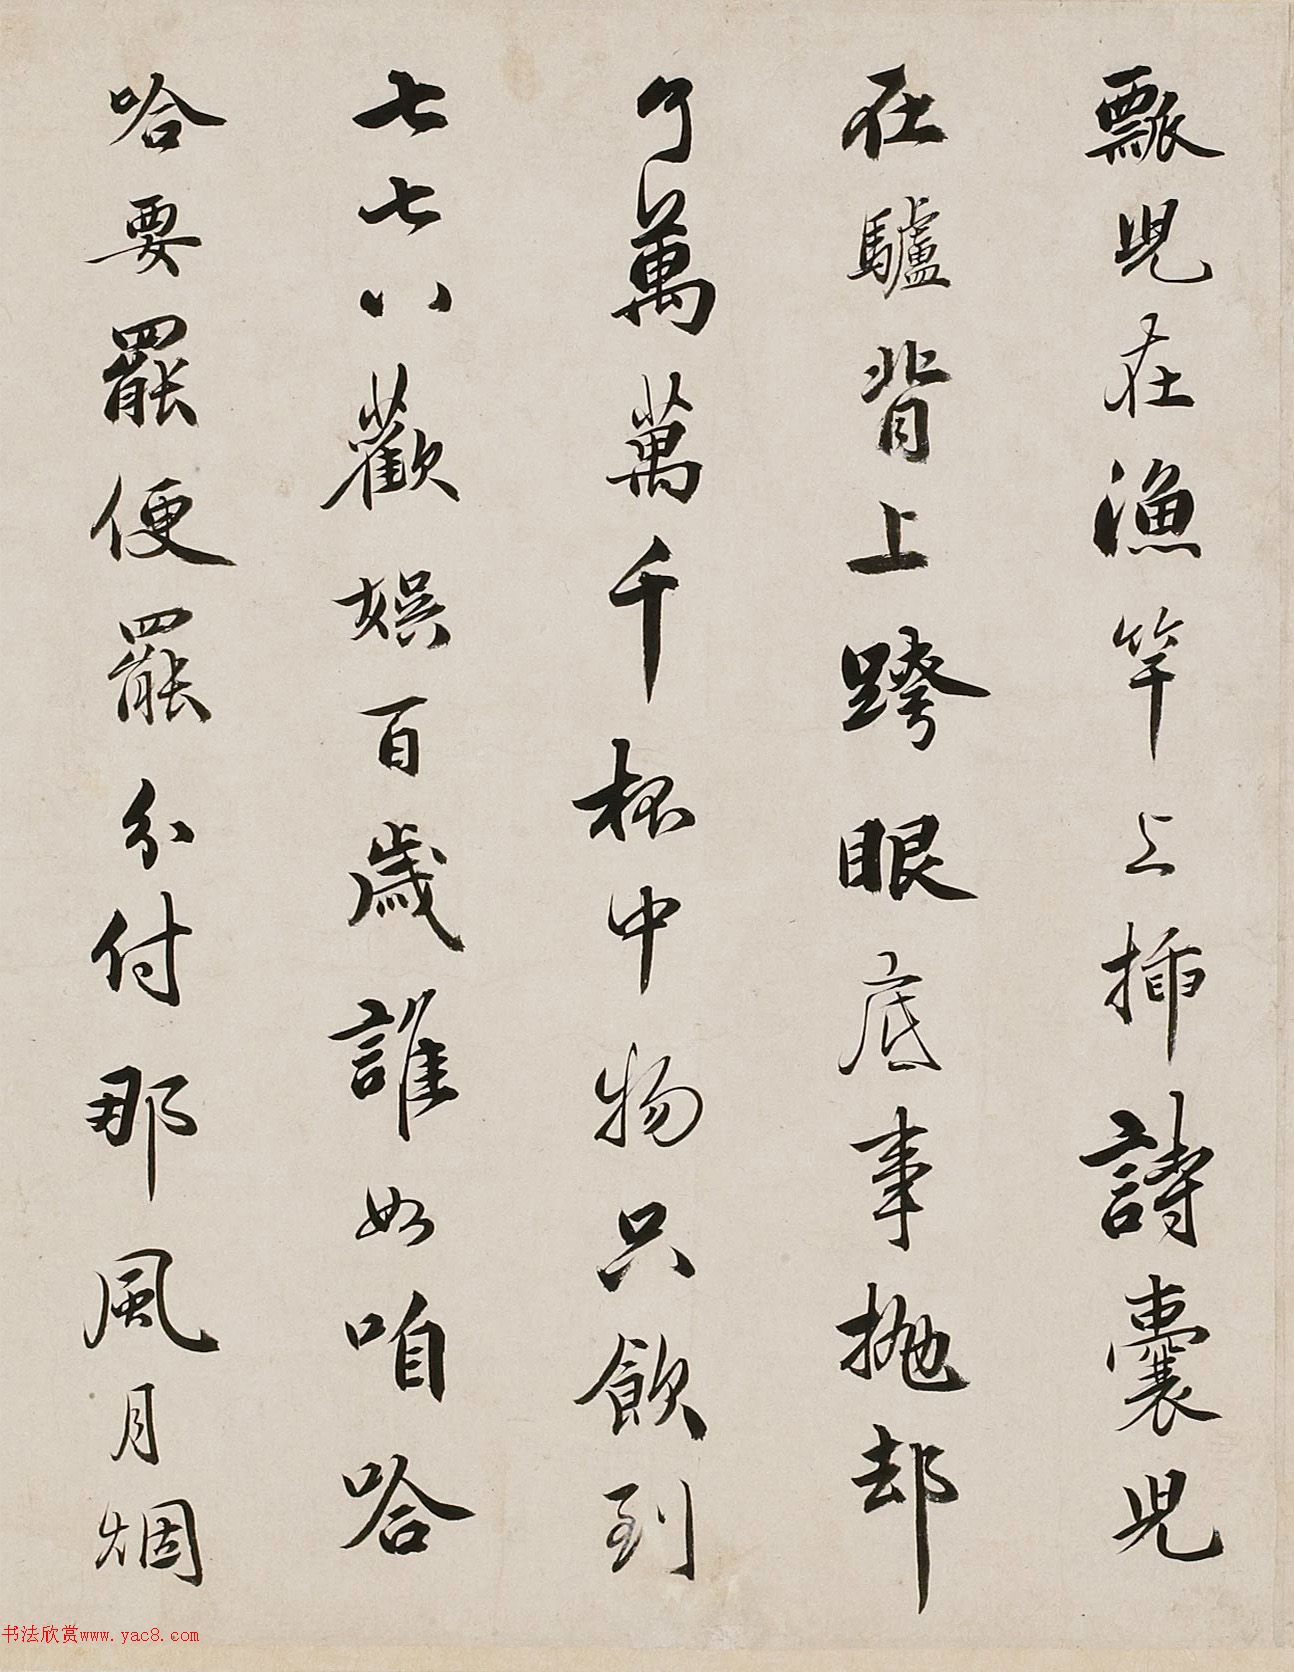 瓢児在漁竿上挿詩囊児
在驢背上跨眼底事抛却
了萬萬千杯中物只飲到
七七八歡娛百歲誰如咱哈
哈要罷便罷分付那風月烟
书法欣赏www.yac8.com